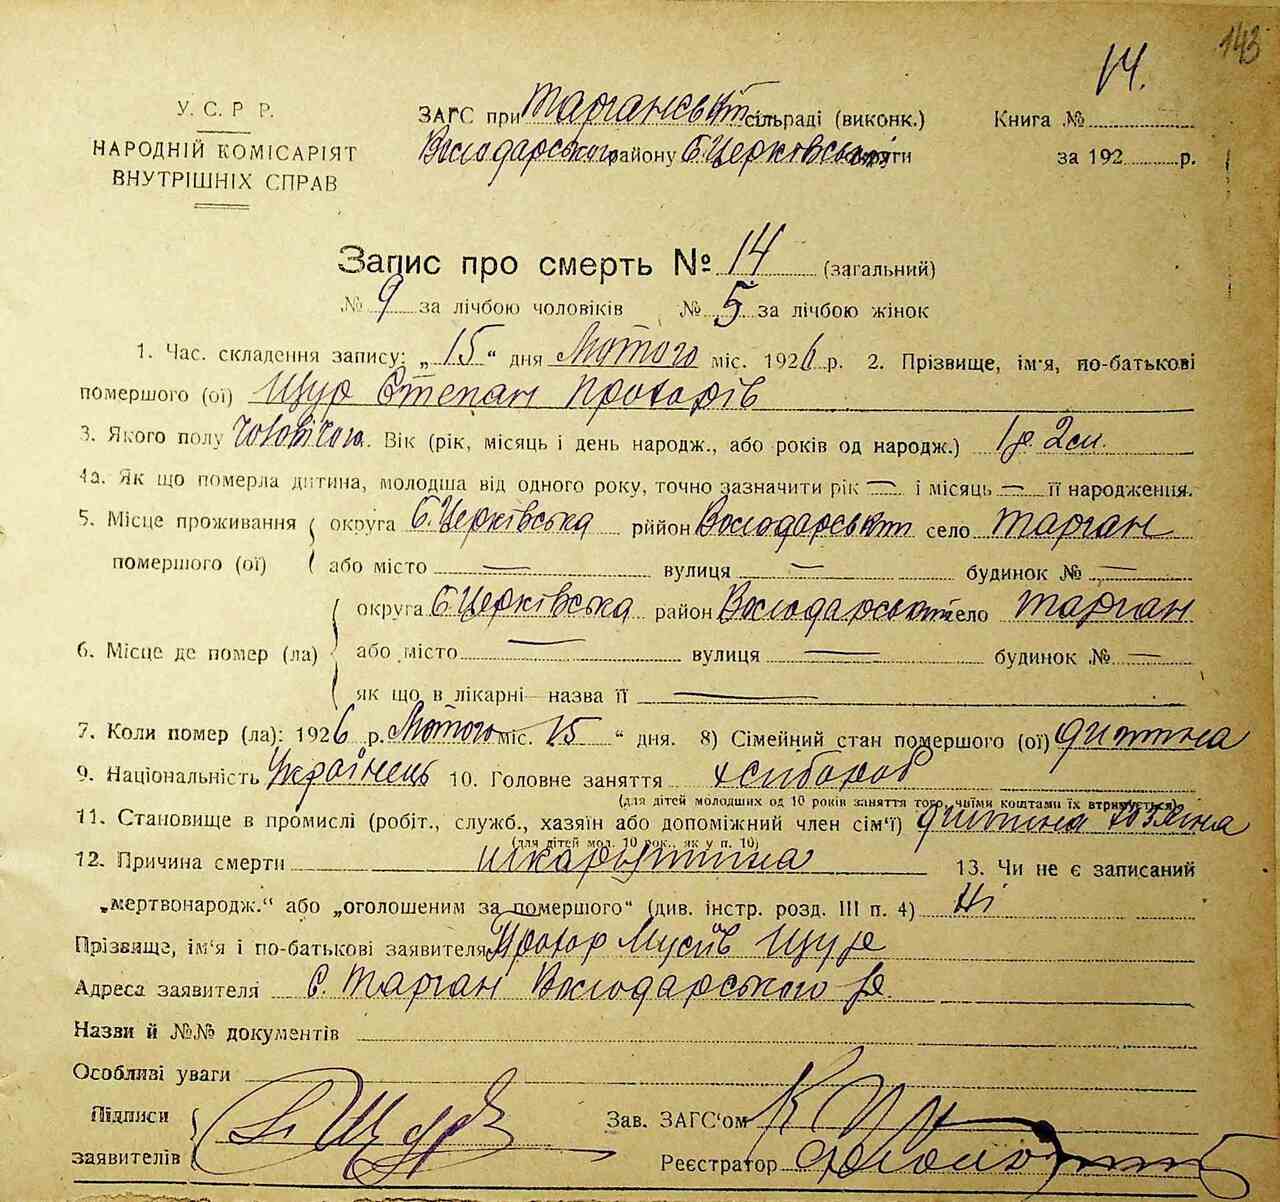 143
14.
У. С. Р Р.
НАРОДНІЙ КОМІСАРІЯТ
ВНУТРІШНІХ СПРАВ
ЗАГС при Тарганській сільраді (виконк.)
Володарського району Б.Церківської округи
Книга №
за 192 р.
Запис про смерть № 14 (загальний)
№ 9 за лічбою чоловіків № 5 за лічбою жінок
1. Час. складення запису: „ 15 “ дня Лютого міс. 1926 р. 2. Прізвище, ім'я, по-батькові
помершого (ої) Щур Степан Прохорів
3. Якого полу Чоловічого. Вік (рік, місяць і день народж., або років од народж.) 1 р. 2 м.
4а. Як що померла дитина, молодша від одного року, точно зазначити рік — і місяць — її народження.
5. Місце проживання помершого (ої) округа Б.Церківська рййон Володарський село Тарган
або місто — вулиця — будинок № —
6. Місце де помер (ла) округа Б.Церківська район Володарський село Тарган
або місто — вулиця — будинок № —
як що в лікарні—назва її —
7. Коли помер (ла): 1926 р. Лютого міс. 15 “ дня. 8) Сімейний стан помершого (ої) дитина
9. Національність Українець 10. Головне заняття хлібороб
(для дітей молодших од 10 років заняття того, чиїми коштами їх втримується)
11. Становище в промислі (робіт., служб., хазяїн або допоміжний член сім'ї) дитина хозяїна
(для дітей мол. 10 рок., як у п. 10)
12. Причина смерти шкарлятина 13. Чи не є записаний
„мертвонародж.“ або „оголошеним за помершого“ (див. інстр. розд. III п. 4) Ні
Прізвище, ім'я і по-батькові заявителя Прохор Мусіїв Щур
Адреса заявителя с. Тарган Володарського р.
Назви й №№ документів
Особливі уваги
Підписи заявителів Щур
Зав. ЗАГС'ом
Реєстратор